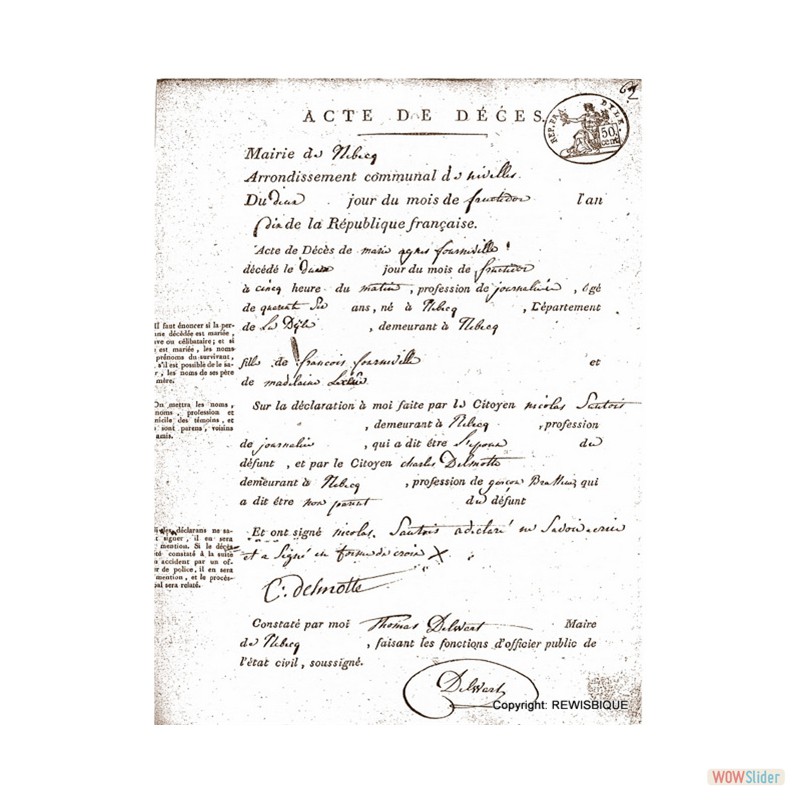 62
ACTE DE DÉCES.
REP. FRA. DYLE. 50. cent
Mairie de Rebecq
Arrondissement communal de nivelles.
Du deux jour du mois de fructidor l'an
dix de la République française.
Acte de Décès de marie agnes fourniville
décédé le deux jour du mois de fructidor
à cinq heure du matin, profession de journalière, âgé
de quarant six ans, né à Rebecq, Département
de La Dyle, demeurant à Rebecq
Il faut énoncer si la per-
nne décédée est mariée,
ve ou célibataire; et si
est mariée, les noms
prénoms du survivant,
s'il est possible de le sa-
r, les noms de ses père
mère.
fille de francois fourniville et
de madelaine
On mettra les noms,
noms, profession et
nicile des témoins, et
sont parens, voisins
amis.
Sur la déclaration à moi faite par le Citoyen nicolas Sautois
, demeurant à Rebecq, profession
de journalier, qui a dit être l'epoux du
défunt, et par le Citoyen charles Delmotte
demeurant à Rebecq, profession de garcon qui
a dit être non parent du défunt
les déclarans ne sa-
t signer, il en sera
mention. Si le décès
té constaté à la suite
n accident par un of-
er de police, il en sera
mention, et le procès-
bal sera relaté.
Et ont signé nicolas Sautois a declaré ne Savoir ecrire
et a Signé en forme de croix X
C: delmotte
Constaté par moi Thomas Delwart Maire
de Rebecq, faisant les fonctions d'officier public de
l'état civil, soussigné.
Delwart
Copyright: REWISBIQUE
WOWSlider